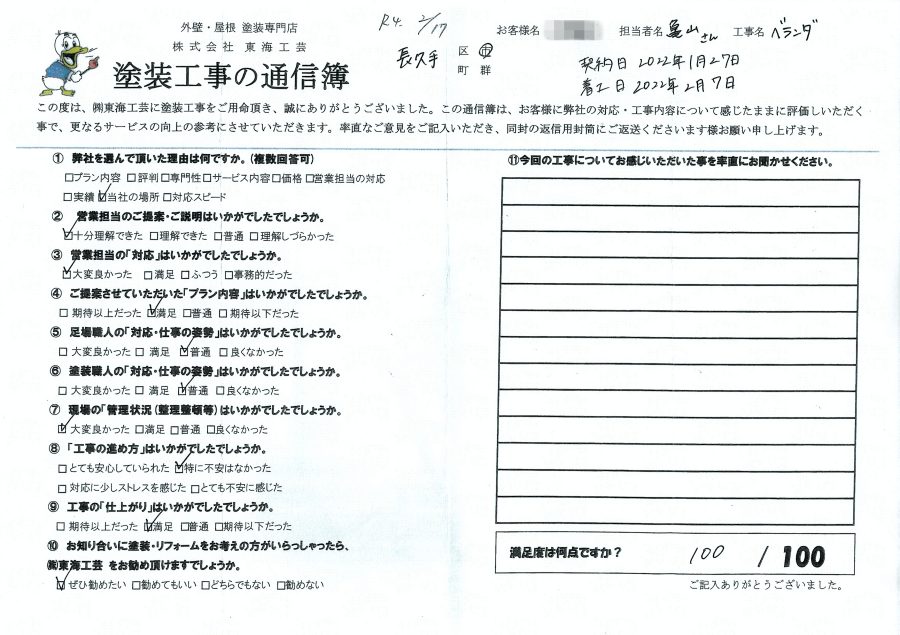 外壁・屋根 塗装専門店
株式会社 東海工芸
塗装工事の通信簿
R4. 2/17
長久手 区 市
町 群
お客様名 担当者名 亀山さん 工事名 ベランダ
契約日 2022年1月27日
着工日 2022年2月7日
この度は、㈱東海工芸に塗装工事をご用命頂き、誠にありがとうございました。この通信簿は、お客様に弊社の対応・工事内容について感じたままに評価しいただく
事で、更なるサービスの向上の参考にさせていただきます。率直なご意見をご記入いただき、同封の返信用封筒にご返送くださいます様お願い申し上げます。
① 弊社を選んで頂いた理由は何ですか。(複数回答可)
□プラン内容 □評判 □専門性 □サービス内容 □価格 □営業担当の対応
□実績 ☑当社の場所 □対応スピード
② 営業担当のご提案・ご説明はいかがでしたでしょうか。
☑十分理解できた □理解できた □普通 □理解しづらかった
③ 営業担当の「対応」はいかがでしたでしょうか。
☑大変良かった □満足 □ふつう □事務的だった
④ ご提案させていただいた「プラン内容」はいかがでしたでしょうか。
□期待以上だった ☑満足 □普通 □期待以下だった
⑤ 足場職人の「対応・仕事の姿勢」はいかがでしたでしょうか。
□大変良かった □満足 ☑普通 □良くなかった
⑥ 塗装職人の「対応・仕事の姿勢」はいかがでしたでしょうか。
□大変良かった □満足 ☑普通 □良くなかった
⑦ 現場の「管理状況(整理整頓等)はいかがでしたでしょうか。
☑大変良かった □満足 □普通 □良くなかった
⑧ 「工事の進め方」はいかがでしたでしょうか。
□とても安心していられた ☑特に不安はなかった
□対応に少しストレスを感じた □とても不安に感じた
⑨ 工事の「仕上がり」はいかがでしたでしょうか。
□期待以上だった ☑満足 □普通 □期待以下だった
⑩ お知り合いに塗装・リフォームをお考えの方がいらっしゃったら、
㈱東海工芸 をお勧め頂けますでしょうか。
☑ぜひ勧めたい □勧めてもいい □どちらでもない □勧めない
⑪今回の工事についてお感じいただいた事を率直にお聞かせください。
満足度は何点ですか? 100 / 100
ご記入ありがとうございました。